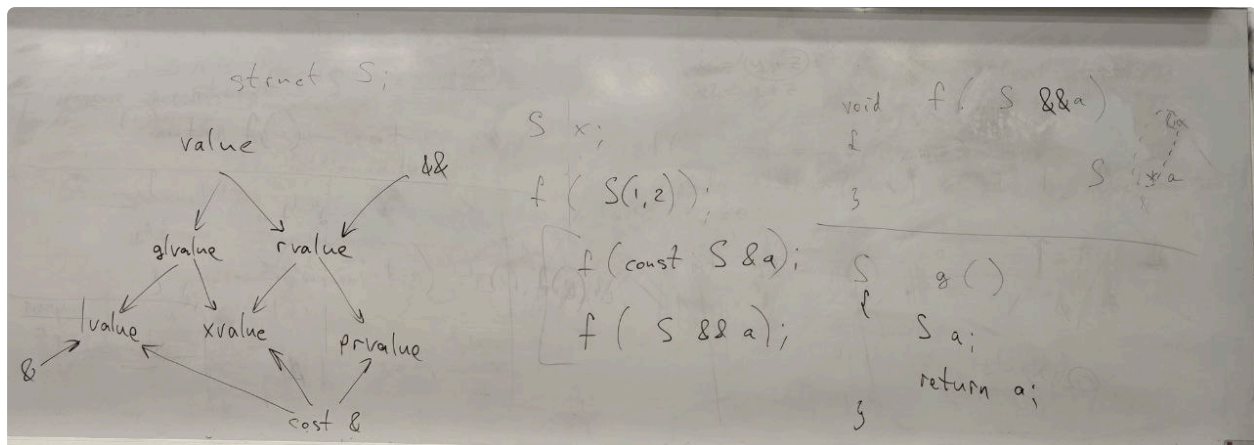 struct S;
value
&&
glvalue rvalue
lvalue xvalue prvalue
&
cost &
S x;
f ( S(1,2));
f (const S &a);
f ( S && a);
void f( S &&a)
{
}
S * a
S g()
{
S a;
return a;
}